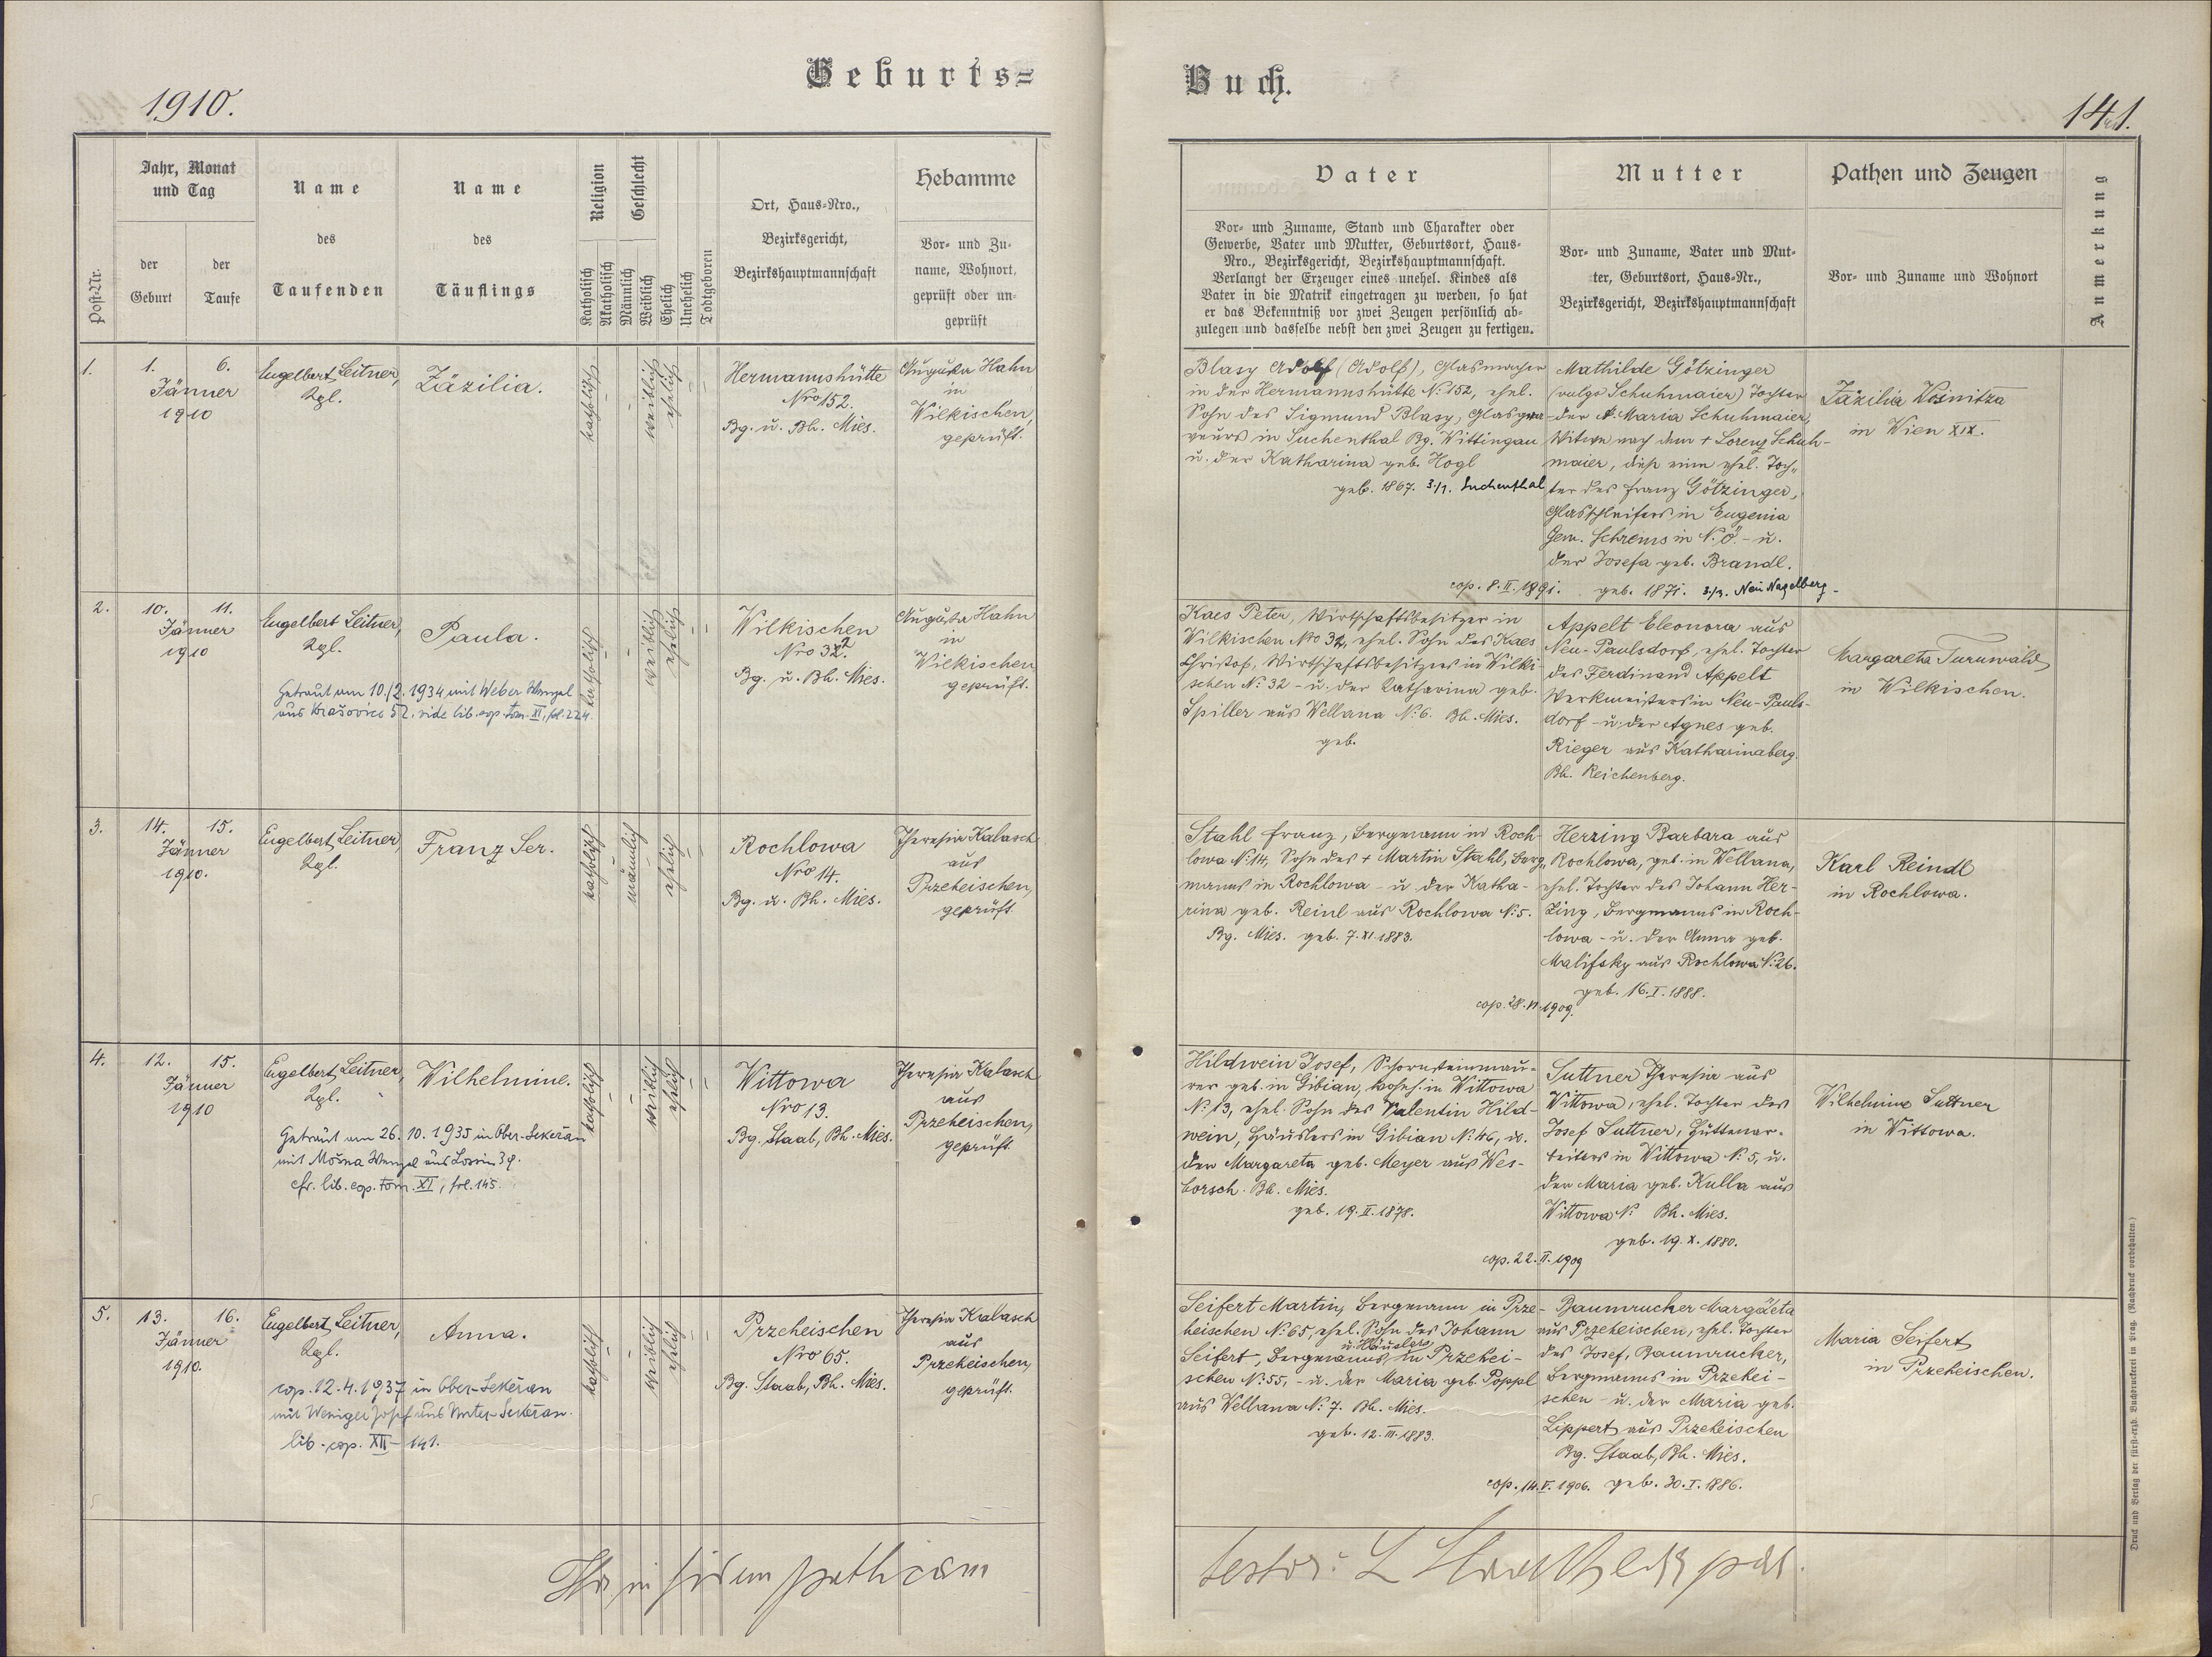 Geburts=
1910.
Post-Nr.
Jahr, Monat
und Tag
der
Geburt
der
Taufe
Name
des
Taufenden
Name
des
Täuflings
Religion
Katholisch
Akatholisch
Geschlecht
Männlich
Weiblich
Ehelich
Unehelich
Todtgeboren
Ort, Haus=Nro.,
Bezirksgericht,
Bezirkshauptmannschaft
Hebamme
Vor= und Zu=
name, Wohnort,
geprüft oder un=
geprüft
1.
1. 6.
Jänner
1910
Engelbert Leitner,
Kgl.
Zäzilia.
katholisch
weiblich
ehelich
Hermannshütte
Nro 152.
Bg. u. Bh. Mies.
Augusta Hahn
in
Wilkischen,
geprüft.
2.
10. 11.
Jänner
1910
Engelbert Leitner,
Kgl.
Getraut am 10./2. 1934 mit Weber Wenzel
aus Krašovice 52. vide lib. cop. tom. XI, fol. 224.
Paula.
katholisch
weiblich
ehelich
Wilkischen
Nro 32.
Bg. u. Bh. Mies.
Augusta Hahn
in
Wilkischen
geprüft.
3.
14. 15.
Jänner
1910.
Engelbert Leitner,
Kgl.
Franz Ser.
katholisch
männlich
ehelich
Rochlowa
Nro 14.
Bg. u. Bh. Mies.
Theresia Kalasch
aus
Przeheischen,
geprüft
4.
12. 15.
Jänner
1910
Engelbert Leitner,
Kgl.
Getraut am 26. 10. 1935 in Ober-Sekeřan
mit Mošna Wenzel aus Lossin 39.
cfr. lib. cop. tom. XI, fol. 145.
Wilhelmine.
katholisch
weiblich
ehelich
Wittowa
Nro 13.
Bg. Staab, Bh. Mies.
Theresia Kalasch
aus
Przeheischen,
geprüft.
5.
13. 16.
Jänner
1910.
Engelbert Leitner,
Kgl.
cop. 12. 4. 1937 in Ober-Sekeřan
mit Weniger Josef aus Unter-Sekeřan.
lib. cop. XII - 141.
Anna.
katholisch
weiblich
ehelich
Przeheischen
Nro 65.
Bg. Staab, Bh. Mies.
Theresia Kalasch
aus
Przeheischen,
geprüft.
Buch.
141.
Vater
Vor= und Zuname, Stand und Charakter oder
Gewerbe, Vater und Mutter, Geburtsort, Haus=
Nro., Bezirksgericht, Bezirkshauptmannschaft.
Verlangt der Erzeuger eines unehel. Kindes als
Vater in die Matrik eingetragen zu werden, so hat
er das Bekenntniß vor zwei Zeugen persönlich ab=
zulegen und dasselbe nebst den zwei Zeugen zu fertigen.
Mutter
Vor= und Zuname, Vater und Mut=
ter, Geburtsort, Haus=Nr.,
Bezirksgericht, Bezirkshauptmannschaft
Pathen und Zeugen
Vor= und Zuname und Wohnort
Anmerkung
Blasy Adolf (Adolf), Glasmacher
in der Hermannshütte N: 152, ehel.
Sohn des Sigmund Blasy, Glasgra-
veurs in Suchenthal Bg. Wittingau
u. der Katharina geb. Hogl
geb. 1867. 3./1. Suchenthal
Mathilde Götzinger
(vulgo Schuhmaier) Tochter
der Maria Schuhmaier,
Witwe nach dem + Lorenz Schuh-
maier, dieß eine ehel. Toch=
ter des Franz Götzinger,
Glasschleifers in Eugenia
Gem. Schrems in N.Ö. - u.
der Josefa geb. Brandl.
cop. 8. II. 1891. geb. 1871. 3./3. Neu Nagelberg.
Zäzilia Wosnitza
in Wien XIX.
Kaes Peter, Wirtschaftsbesitzer in
Wilkischen Nro 32, ehel. Sohn des Kaes
Christof, Wirtschaftsbesitzers in Wilki-
schen N: 32 - u. der Katharina geb.
Spiller aus Wellana N: 6. Bh. Mies.
geb.
Appelt Eleonora aus
Neu-Paulsdorf, ehel. Tochter
des Ferdinand Appelt
Werkmeisters in Neu-Pauls-
dorf - u. der Agnes geb.
Rieger aus Katharinaberg.
Bh. Reichenberg.
Margareta Turnwald
in Wilkischen.
Stahl Franz, Bergmann in Roch-
lowa N: 14, Sohn des + Martin Stahl, Berg=
manns in Rochlowa - u der Katha-
rina geb. Reinl aus Rochlowa N: 5.
Bg. Mies. geb. 7. XI. 1883.
Herzing Barbara aus
Rochlowa, geb. in Wellana,
ehel. Tochter des Johann Her-
zing, Bergmanns in Roch-
lowa - u. der Anna geb.
Malifsky aus Rochlowa N: 26.
geb. 16. I. 1888.
cop. 28. VI. 1909.
Karl Reindl
in Rochlowa.
Hildwein Josef, Schornsteinmau-
rer geb. in Gibian, wohnh. in Wittowa
N: 13, ehel. Sohn des Valentin Hild-
wein, Häuslers in Gibian N: 46, u.
der Margareta geb. Meyer aus Wes-
borsch. Bh. Mies.
geb. 19. II. 1878.
Suttner Theresia aus
Wittowa, ehel. Tochter des
Josef Suttner, Hüttenar-
beiters in Wittowa N: 5, u.
der Maria geb. Kulla aus
Wittowa N: Bh. Mies.
geb. 19. X. 1880.
cop. 22. II. 1909
Wilhelmine Suttner
in Wittowa.
Seifert Martin, Bergmann in Prze-
heischen N: 65, ehel. Sohn des Johann
u. Häuslers
Seifert, Bergmanns in Przehei-
schen N: 55, - u. der Maria geb. Poppl
aus Wellana N: 7. Bh. Mies.
geb. 12. III. 1883.
Baumrucker Margareta
aus Przeheischen, ehel. Tochter
des Josef, Baumrucker,
Bergmanns in Przehei-
schen - u. der Maria geb.
Lippert aus Przeheischen
Bg. Staab, Bh. Mies.
cop. 14. V. 1906. geb. 30. I. 1886.
Maria Seifert
in Przeheischen.
Druck und Verlag der fürst-erzb. Buchdruckerei in Prag. (Nachdruck vorbehalten.)